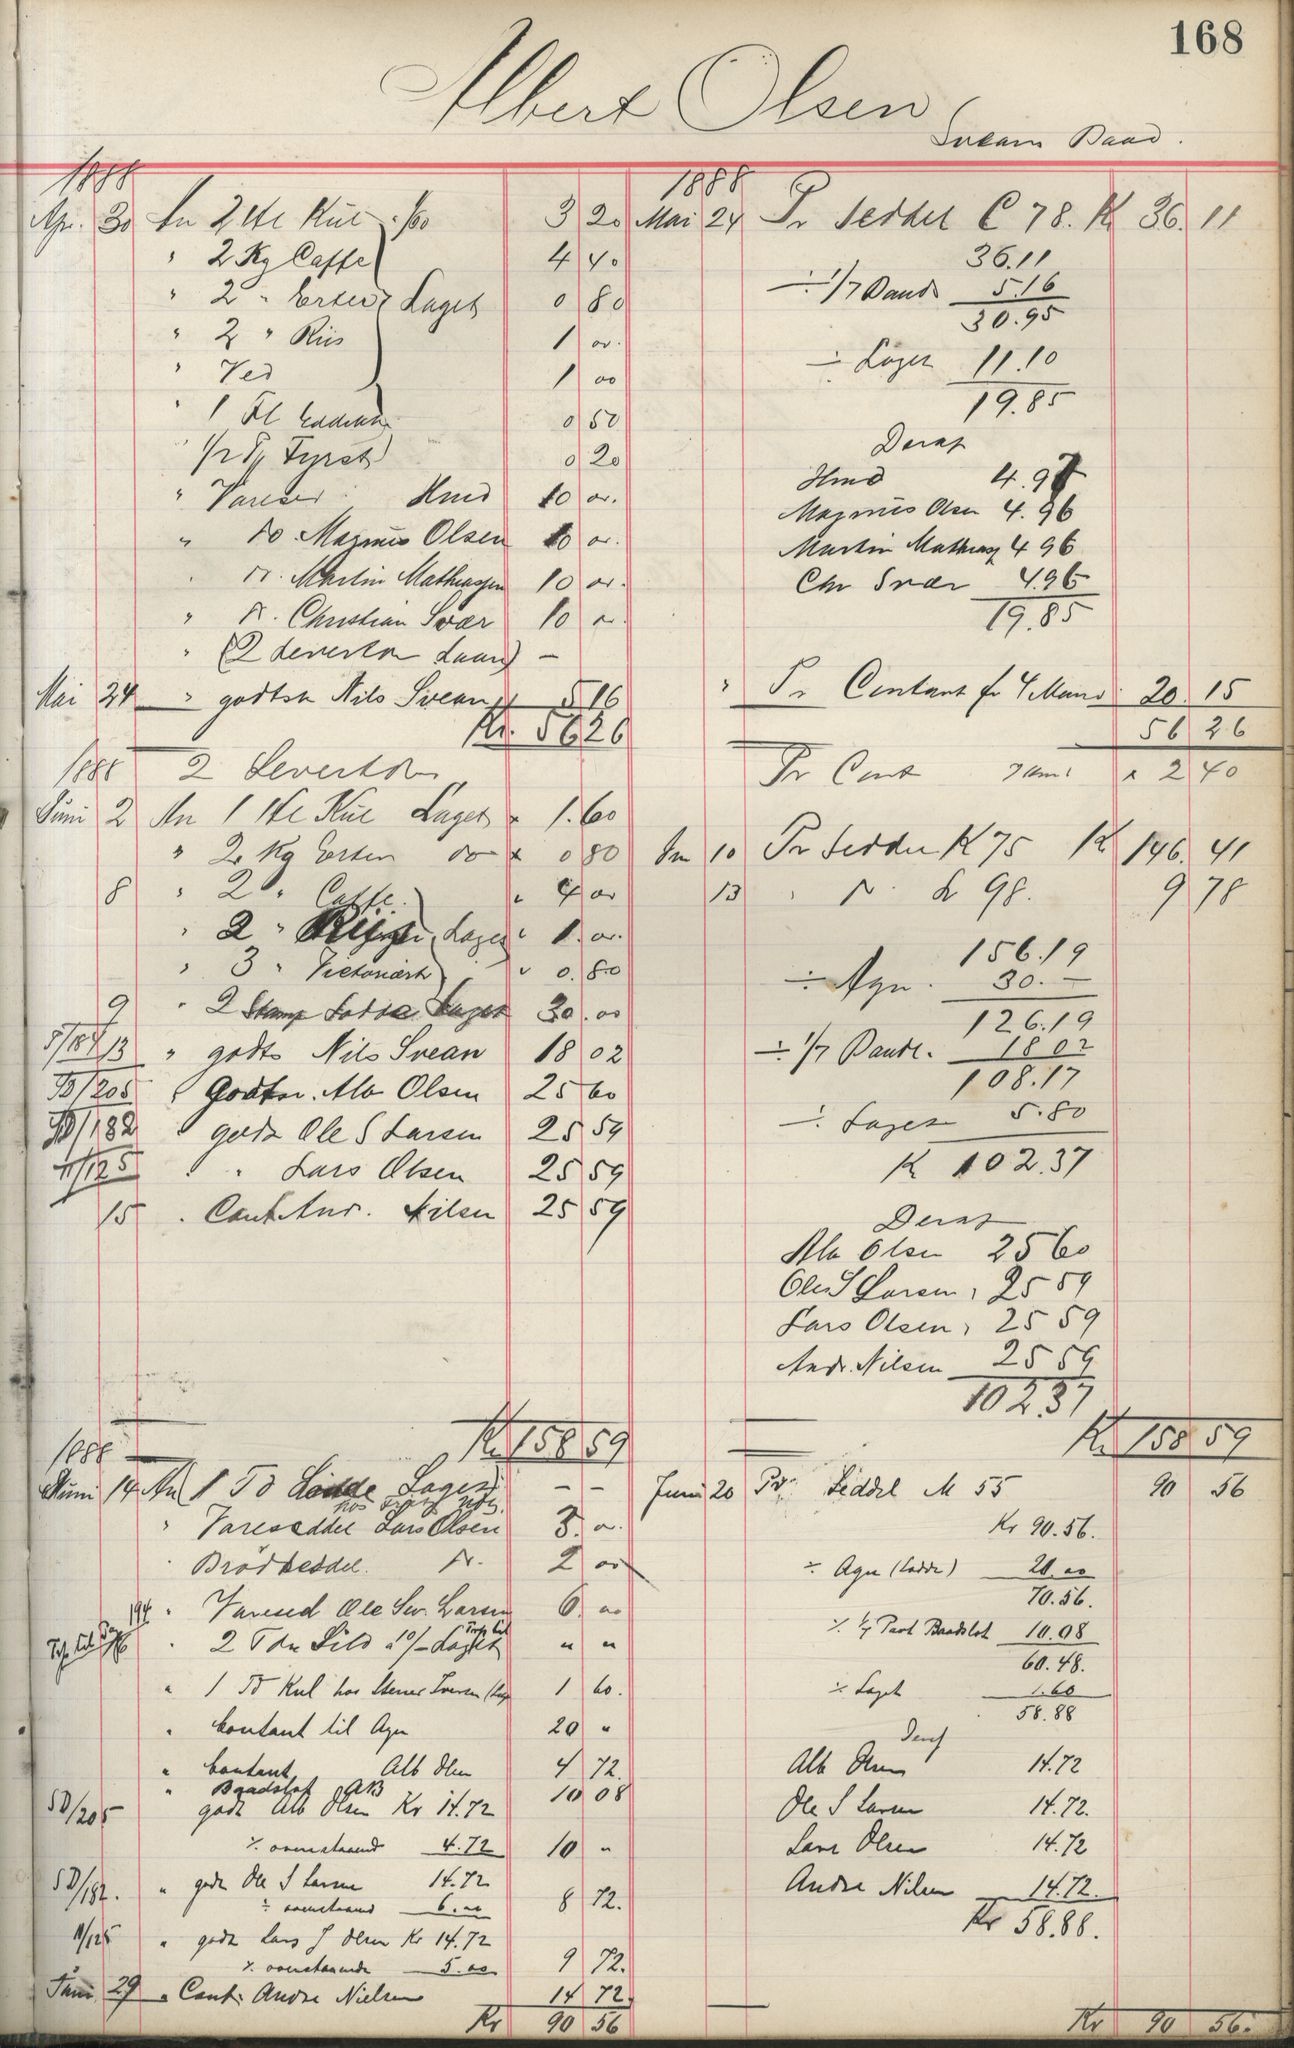 168
Albert Olsen
Sveans Baad.
1888
Apr. 30 An 2 Hl Kul 1/60 3 20
" 2 Kg Caffe 4 40
" 2 " Erter Laget 0 80
" 2 " Riis 1 00
" Ved 1 00
" 1 Fl Eddik 0 50
1/2 Fyrst 0 20
" Vareser Hmd 10 00.
" do. Magnus Olsen 10 00.
do. Martin Mathiassen 10 00.
" do. Christian Svær 10 00
" (2 Levertøn Laan) —
Mai 24 " godtsk Nils Svean 5 16
Kr. 56 26
1888 2 Levertøn
Juni 2 An 1 Hl Kul Laget × 1.60
" 2 Kg Erter do × 0 80
8 " 2 " Caffe 4 00
" 2 " Riis Laget 1. 00.
" 3 " Victoriært 0.80
9 " 2 Stamp Lodde Laget 30.00
13 " godts Nils Svean 18 02
SD/205 " Godtsk. Alb Olsen 25 60
SD/182 " godtsk Ole S Larsen 25 59
11/125 " " Lars Olsen 25 59
15 . Cont Andr. Nilsen 25 59
Kr 158 59
1888
Juni 14 An 1 Td Lodde Laget — —
" Vareseddel Lars Olsen 3. 00.
" Brödseddel do. 2 00
194 " Varesed Ole Sev. Larsen 6. 00
16 . 2 Tdr Sild a 10/– Laget " "
" 1 Td Kul hos Stener Iversen 1 60.
" Contant til Agn 20 "
" Contant Alb Olsen 4 72.
" Baadslot AB 10 08
SD/205 godtsk Alb Olsen Kr 14.72
÷ ovenstaaend 4.72 10 "
SD/182. " godtsk Ole S Larsen 14.72
÷ ovenstaaend 6.00 8 72.
11/125 " godtsk Lars J Olsen Kr 14.72
÷ ovenstaaende 5.00 9 72.
Juni 29 " Cont. Andre Nielsen 14 72.
Kr 90 56
1888
Mai 24 Pr Seddel C 78. Kr 36. 11
36.11
÷ 1/7 Baads 5.16
30.95
÷ Laget 11.10
19.85
Deraf
Hmd 4.97
Magnus Olsen 4.96
Martin Mathiass 4 96
Chr Svær 4.96
19.85
" Pr Contant for 4 Mand 20. 15
56 26
Pr Cont × 2 40
Juni 10 Pr Seddel K 75 Kr 146. 41
13 " do. L 98. 9 78
156.19
÷ Agn. 30. —
126.19
÷ 1/7 Baadsl. 18 02
108.17
÷ Laget 5.80
Kr 102.37
Deraf
Alb Olsen 25 60
Ole S Larsen, 25 59
Lars Olsen, 25 59
Andr. Nilsen 25 59
102.37
Kr 158 59
Juni 20 Pr. Seddel M 55 90 56
Kr 90.56.
÷ Agn (Lodde) 20.00
70.56.
÷ 1/7 Part Baadslot 10.08
60.48.
÷ Laget 1.60
58.88
Deraf
Alb Olsen 14.72
Ole S Larsen 14.72.
Lars Olsen 14.72
Andre Nilsen 14.72.
Kr 58.88.
Kr 90 56.